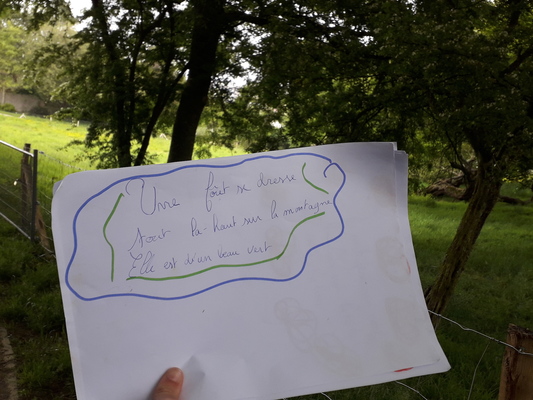 Une forêt se dresse
tout là-haut sur la montagne
Elle est d'un beau vert